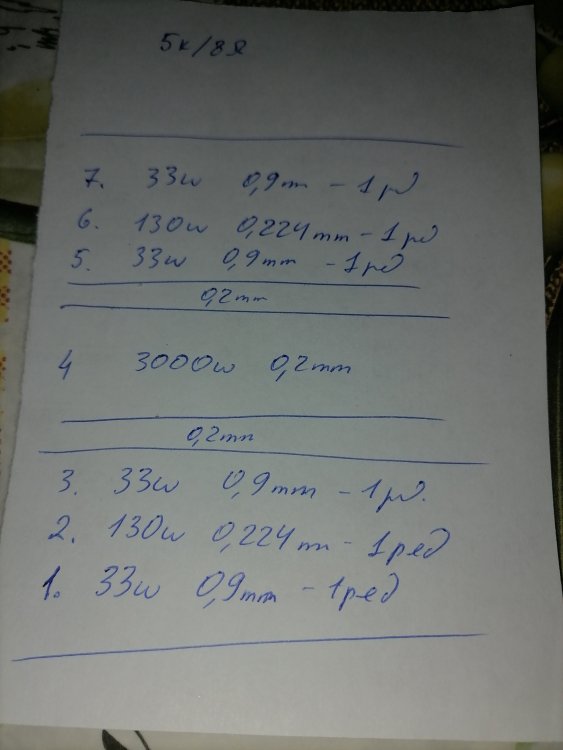 5к/8Ω
7. 33w 0,9mm - 1 рд
6. 130w 0,224mm - 1 рд
5. 33w 0,9mm - 1 рд
0,2mm
4 3000w 0,2mm
0,2mm
3. 33w 0,9mm - 1 рд.
2. 130w 0,224mm - 1 ред
1. 33w 0,9mm - 1 ред